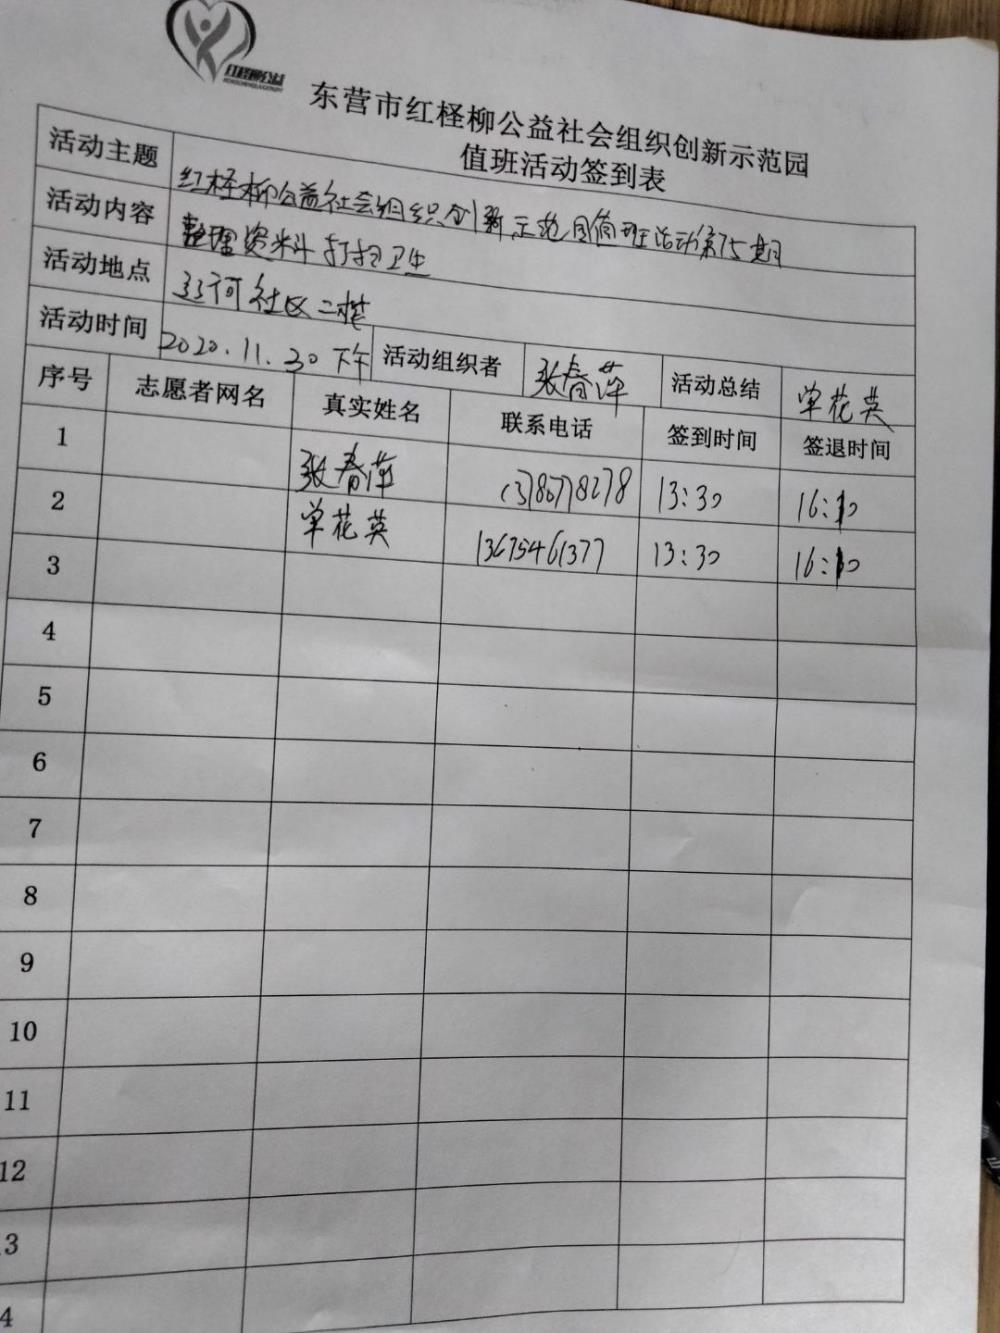 红柽柳公益
东营市红柽柳公益社会组织创新示范园
值班活动签到表
活动主题 红柽柳公益社会组织创新示范园值班活动第75期
活动内容 整理资料 打扫卫生
活动地点 社区二楼
活动时间 2020.11.30下午 活动组织者 张春萍 活动总结 单花英
序号 志愿者网名 真实姓名 联系电话 签到时间 签退时间
1 张春萍 13:30 16:10
2 单花英 13675461377 13:30 16:10
3
4
5
6
7
8
9
10
11
12
3
4